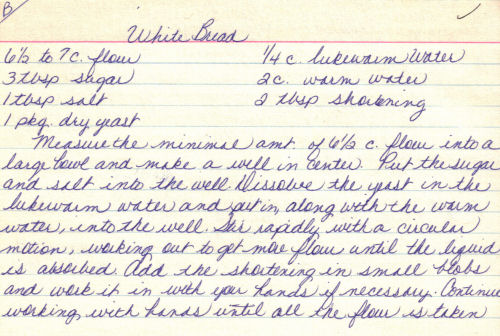 B
White Bread
6½ to 7 c. flour 1/4 c. lukewarm water
3 tbsp sugar 2 c. warm water
1 tbsp salt 2 tbsp shortening
1 pkg. dry yeast
Measure the minimal amt. of 6½ c. flour into a
large bowl and make a well in center. Put the sugar
and salt into the well. Dissolve the yeast in the
lukewarm water and put in, along with the warm
water, into the well. Stir rapidly with a circular
motion, working out to get more flour until the liquid
is absorbed. Add the shortening in small blobs
and work it in with your hands if necessary. Continue
working with hands until all the flour is taken